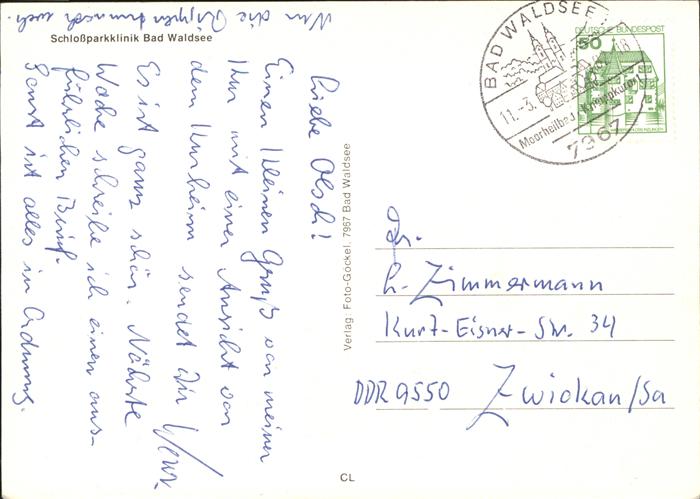 Schloßparkklinik Bad Waldsee
Liebe Olschi!
Einen kleinen Gruß von meiner
Kur mit einer Ansicht von
dem Kurheim sendet Dir
Es ist ganz schön. Nächste
Woche schreibe ich einen aus-
führlichen Brief.
Sonst ist alles in Ordnung.
Nur die Rippen noch
Verlag: Foto-Göckel, 7967 Bad Waldsee
CL
BAD WALDSEE
11.-3.
Moorheilbad Kneippkurort
7967
DEUTSCHE BUNDESPOST
50
Fr.
L. Zimmermann
Kurt-Eisner-Str. 34
DDR 9550 Zwickau/Sa